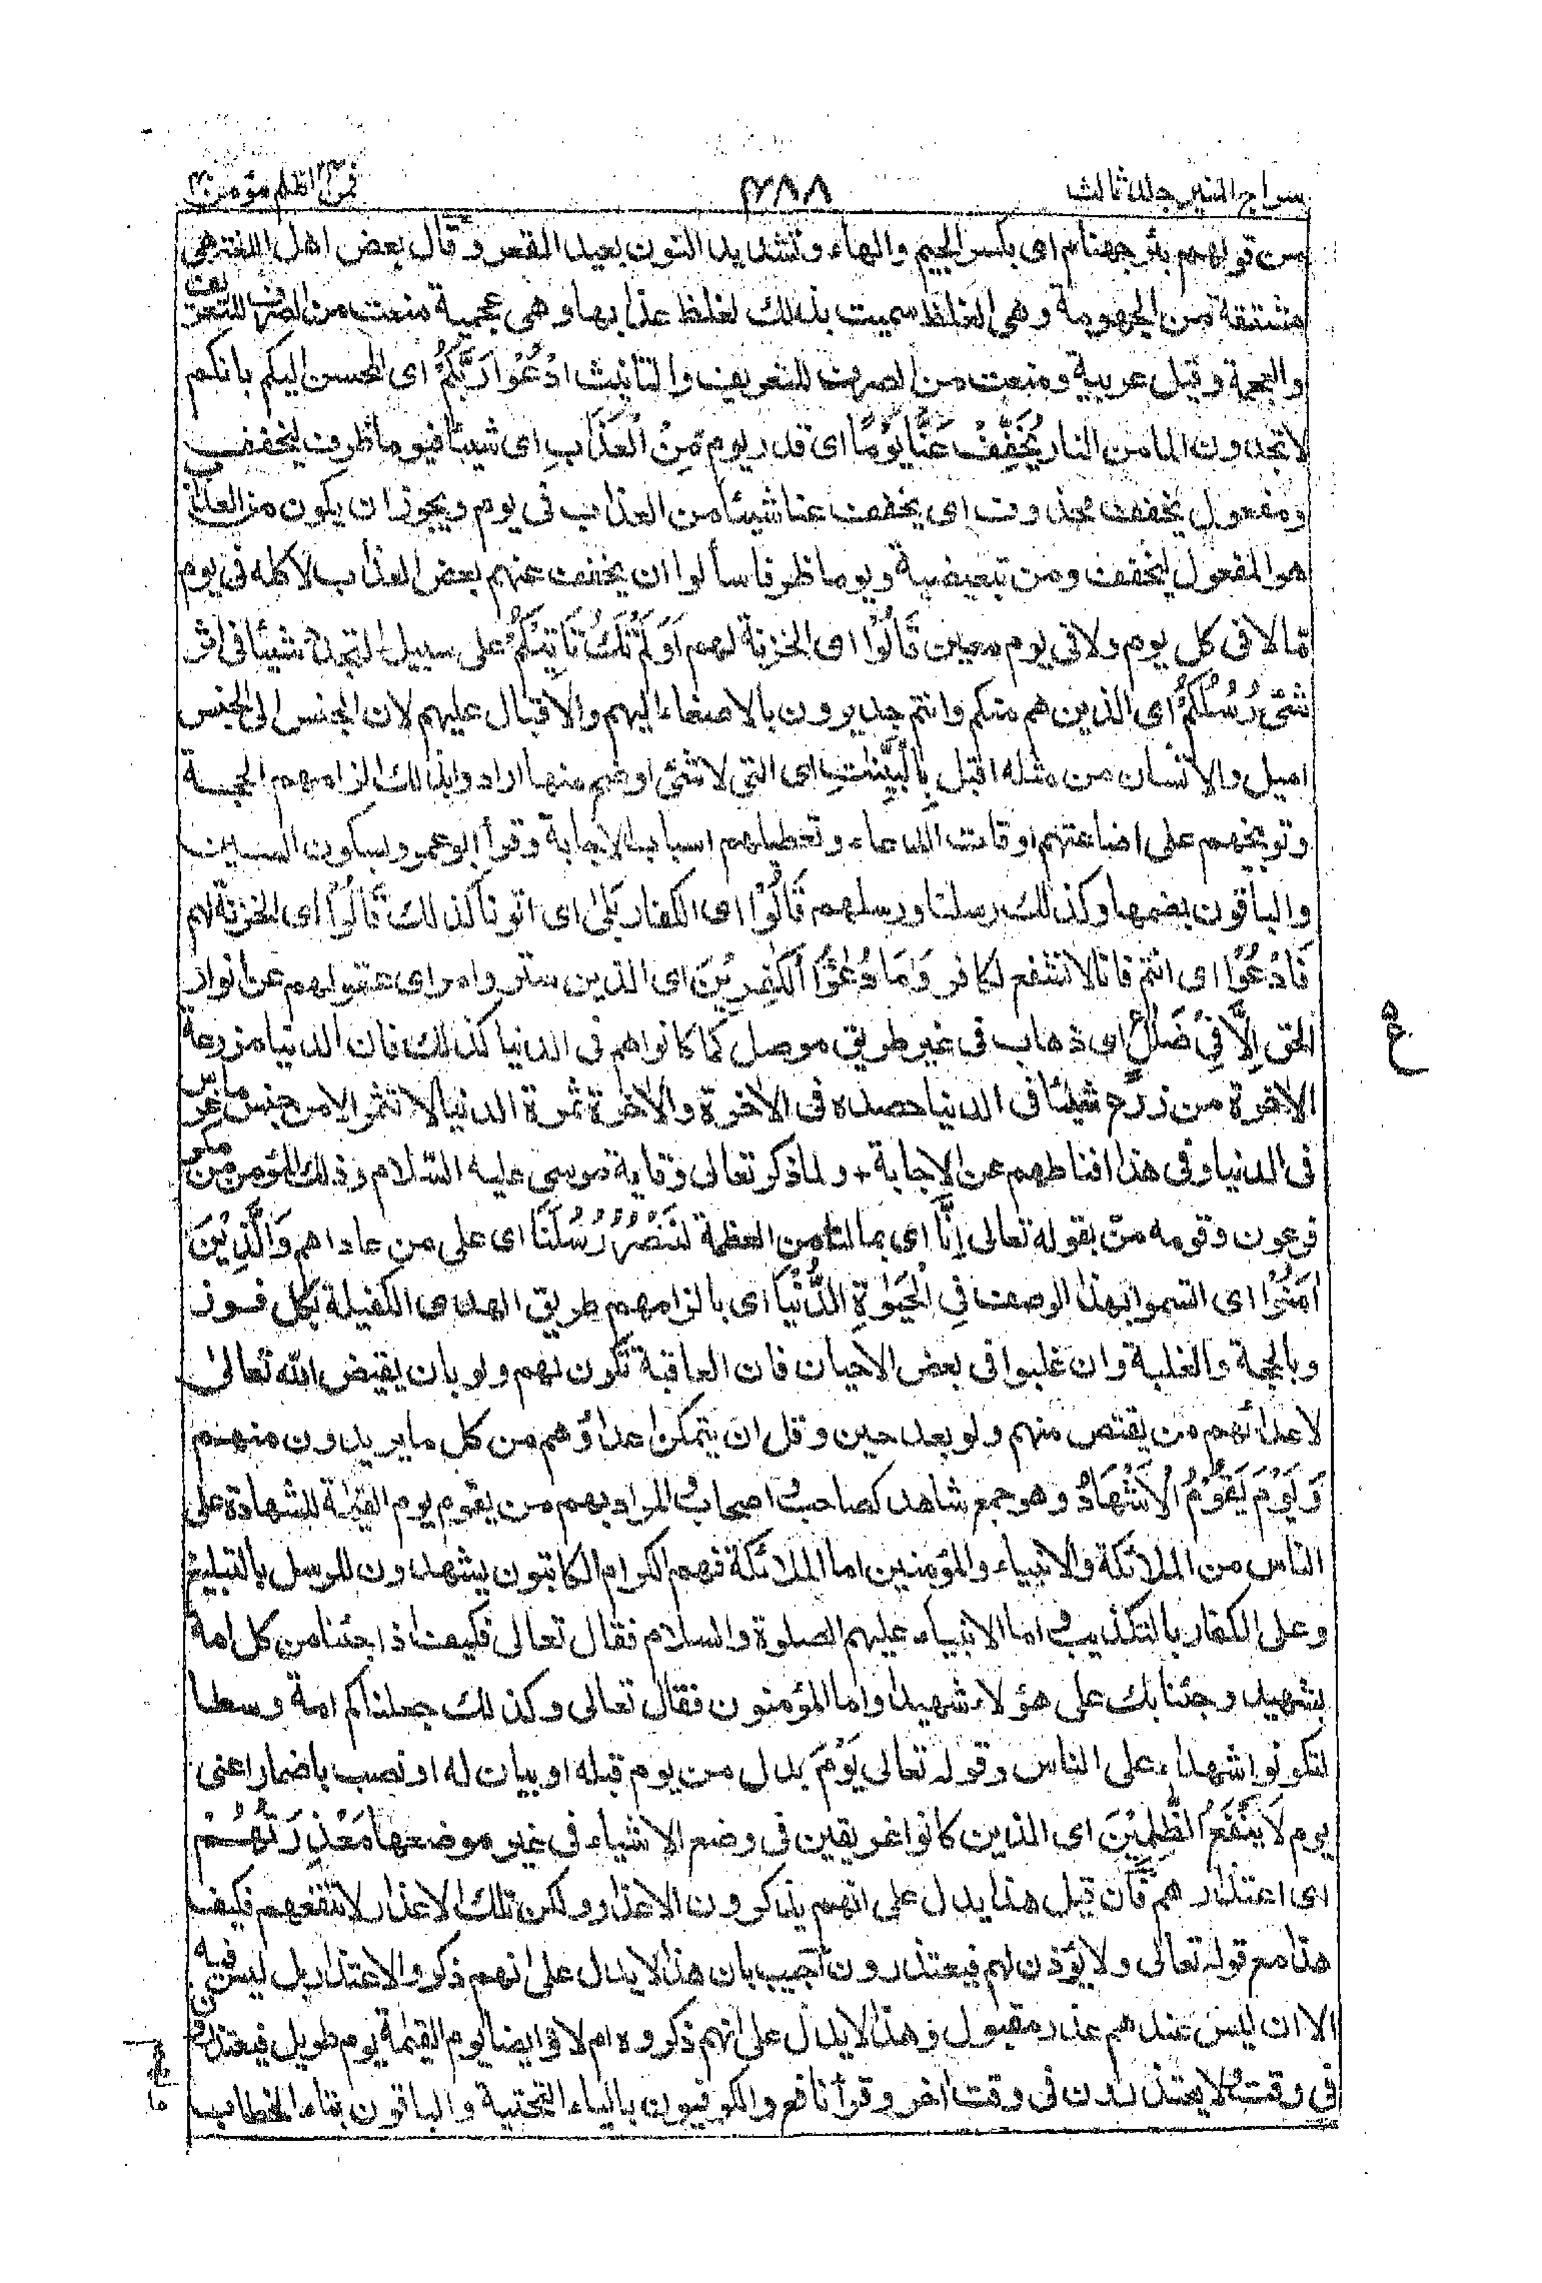 سراج المنير جلد ثالث
٤٨٨
فمن اظلم مؤمن
من قولهم بئر جهنام اى بكسر الجيم والهاء وتشديد النون بعيد القعر وقال بعض اهل اللغة هى
مشتقة من الجهومة وهى الغلظ سميت بذلك لغلظ عذابها وهى عجمية منعت من الصرف للتعريف
والعجمة وقيل عربية ومنعت من الصرف للتعريف والتانيث ادْعُوْا رَبَّكُمْ اى المحسن اليكم بانكم
لا تجدون الما من النار يُخَفِّفْ عَنَّا يَوْمًا اى قدر يوم مِّنَ الْعَذَابِ اى شيئا فيوما ظرف ليخفف
ومفعول يخفف محذوف اى يخفف عنا شيئا من العذاب فى يوم ويجوز ان يكون من العذاب
هو المفعول ليخفف ومن تبعيضية ويوما ظرفا سألوا ان يخفف عنهم بعض العذاب لا كله فى يوم
مّا لا فى كل يوم ولا فى يوم معين قَالُوْٓا اى الخزنة لهم اَوَلَمْ تَكُ تَاْتِيْكُمْ على سبيل التجدد شيئا فى اثر
شئ رُسُلُكُمْ اى الذين هم منكم وانتم جديرون بالاصغاء اليهم والاقبال عليهم لان الجنس الى الجنس
اميل والانسان من مثله اقبل بِالْبَيِّنٰتِ اى التى لا شئ اوضح منها ارادوا بذلك الزامهم الحجة
وتوبيخهم على اضاعتهم اوقات الدعاء وتعطيلهم اسباب الاجابة وقرأ ابو عمرو بسكون السين
والباقون بضمها وكذلك رسلنا ورسلهم قَالُوْا اى الكفار بَلٰى اى اتونا كذلك قَالُوْا اى الخزنة لهم
فَادْعُوْا اى انتم فانا لا نشفع لكافر وَمَا دُعٰٓؤُا الْكٰفِرِيْنَ اى الذين ستروا مراى عقولهم عن انوار
الحق اِلَّا فِيْ ضَلٰلٍ اى ذهاب فى غير طريق موصل كما كانوا هم فى الدنيا كذلك فان الدنيا مزرعة
الاخرة من زرع شيئا فى الدنيا حصده فى الاخرة والاخرة ثمرة الدنيا لا تثمر الا من جنس ما غرس
فى الدنيا وفى هذا اقناطهم عن الاجابة ولما ذكر تعالى وقاية موسى عليه السلام وذلك المؤمن من مكر
فرعون وقومه منّ بقوله تعالى اِنَّا اى بما لنا من العظمة لَنَنْصُرُ رُسُلَنَا اى على من عاداهم وَالَّذِيْنَ
اٰمَنُوْا اى اتسموا بهذا الوصف فِي الْحَيٰوةِ الدُّنْيَا اى بالزامهم طريق الهدى الكفيلة بكل فوز
وبالحجة والغلبة وان غلبوا فى بعض الاحيان فان العاقبة تكون لهم ولو بان يقيض الله تعالى
لاعدائهم من يقتص منهم ولو بعد حين وقل ان يتمكن اعداؤهم من كل ما يريدون منهم
وَيَوْمَ يَقُوْمُ الْاَشْهَادُ وهو جمع شاهد كصاحب واصحاب والمراد بهم من يقوم يوم القيمة للشهادة على
الناس من الملائكة والانبياء والمؤمنين اما الملائكة فهم الكرام الكاتبون يشهدون للرسل بالتبليغ
وعلى الكفار بالتكذيب واما الانبياء عليهم الصلوة والسلام فقال تعالى فكيف اذا جئنا من كل امة
بشهيد وجئنا بك على هؤلاء شهيدا واما المؤمنون فقال تعالى وكذلك جعلناكم امة وسطا
لتكونوا شهداء على الناس وقوله تعالى يَوْمَ بدل من يوم قبله او بيان له او نصب باضمار اعنى
يوم لَا يَنْفَعُ الظّٰلِمِيْنَ اى الذين كانوا غريقين فى وضع الاشياء فى غير موضعها مَعْذِرَتُهُمْ
اى اعتذارهم فان قيل هذا يدل على انهم يذكرون الاعذار ولكن تلك الاعذار لا تنفعهم فكيف
هذا مع قوله تعالى ولا يؤذن لهم فيعتذرون اجيب بان هذا لا يدل على انهم ذكروا الاعتذار بل ليس فيه
الا ان ليس عندهم عذر مقبول وهذا لا يدل على انهم ذكروه ام لا وايضا يوم القيمة يوم طويل فيعتذرون
فى وقت ولا يعتذرون فى وقت اخر وقرأ نافع والكوفيون بالياء التحتية والباقون بتاء الخطاب
ع